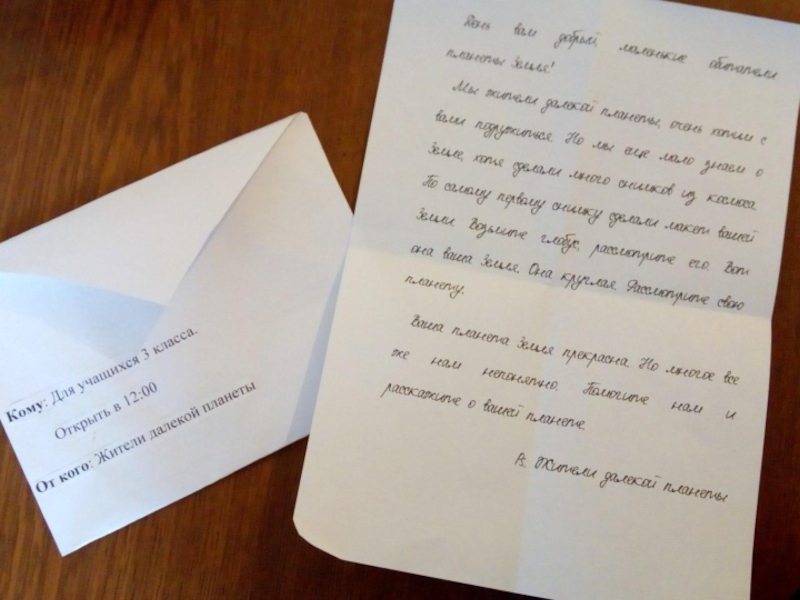 Кому: Для учащихся 3 класса.
Открыть в 12:00
От кого: Жители далекой планеты
День вам добрый, маленькие обитатели
планеты Земля!
Мы жители далекой планеты, очень хотим с
вами подружиться. Но мы еще мало знаем о
Земле, хотя сделали много снимков из космоса.
По самому первому снимку сделали макет вашей
Земли. Возьмите глобус, рассмотрите его. Вот
она ваша Земля. Она круглая. Рассмотрите свою
планету.
Ваша планета Земля прекрасна. Но многое все
же нам непонятно. Помогите нам и
расскажите о вашей планете.
Жители далекой планеты